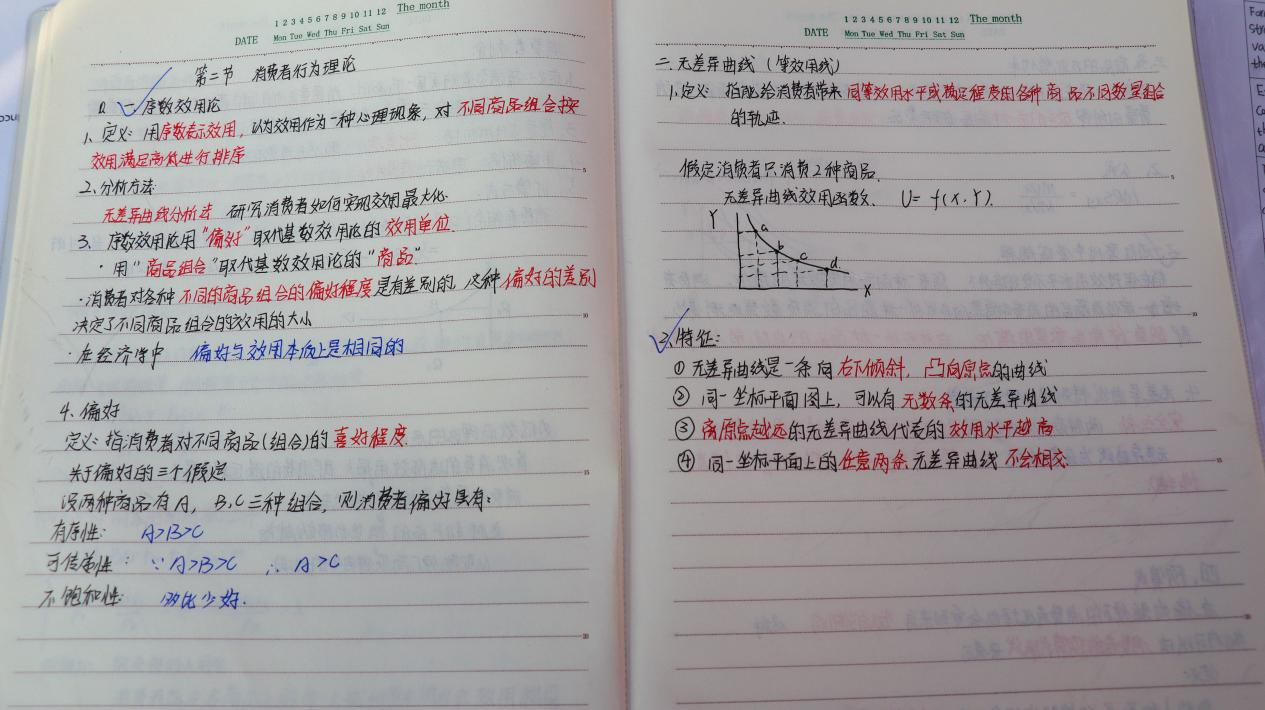 1 2 3 4 5 6 7 8 9 10 11 12 The month
DATE Mon Tue Wed Thu Fri Sat Sun
第二节 消费者行为理论
一、序数效用论
1、定义：用序数表示效用，认为效用作为一种心理现象，对不同商品组合按
效用满足高低进行排序
2、分析方法
无差异曲线分析法 研究消费者如何实现效用最大化.
3、序数效用论用“偏好”取代基数效用论的效用单位.
·用“商品组合”取代基数效用论的“商品”
·消费者对各种不同的商品组合的偏好程度是有差别的，这种偏好的差别
决定了不同商品组合的效用的大小
·在经济学中 偏好与效用本质上是相同的
4、偏好
定义：指消费者对不同商品(组合)的喜好程度.
关于偏好的三个假定
设两种商品有A，B、C三种组合，则消费者偏好具有：
有序性： A>B>C
可传递性： ∵A>B>C ∴A>C
不饱和性： 多比少好.
1 2 3 4 5 6 7 8 9 10 11 12 The month
DATE Mon Tue Wed Thu Fri Sat Sun
二、无差异曲线（等效用线）
1、定义：指能给消费者带来同等效用水平或满足程度的各种商品不同数量组合
的轨迹.
假定消费者只消费2种商品.
无差异曲线效用函数. U=f(X.Y).
Y
a
b
c
d
X
2、特征：
① 无差异曲线是一条向右下倾斜，凸向原点的曲线
② 同一坐标平面图上，可以有无数条的无差异曲线
③ 离原点越远的无差异曲线代表的效用水平越高
④ 同一坐标平面上的任意两条无差异曲线不会相交.